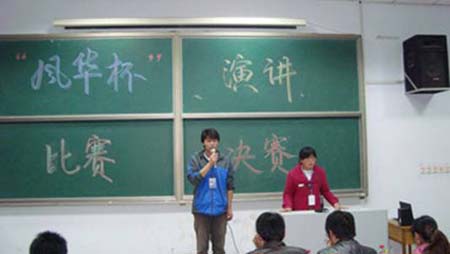 “风华杯”演讲
比赛决赛